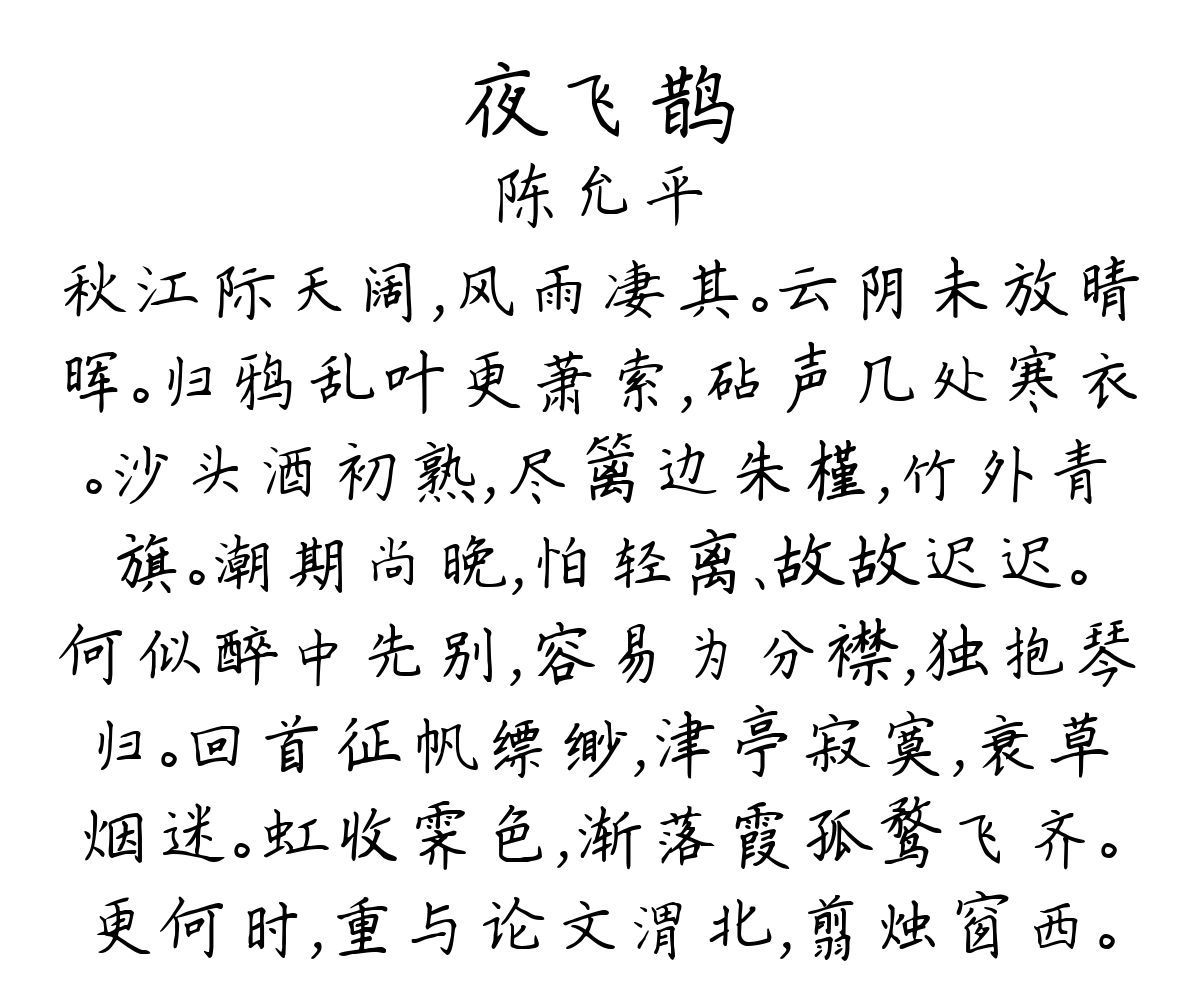 夜飞鹊
陈允平
秋江际天阔,风雨凄其。云阴未放晴
晖。归鸦乱叶更萧索,砧声几处寒衣
。沙头酒初熟,尽篱边朱槿,竹外青
旗。潮期尚晚,怕轻离、故故迟迟。
何似醉中先别,容易为分襟,独抱琴
归。回首征帆缥缈,津亭寂寞,衰草
烟迷。虹收霁色,渐落霞孤鹜飞齐。
更何时,重与论文渭北,翦烛窗西。